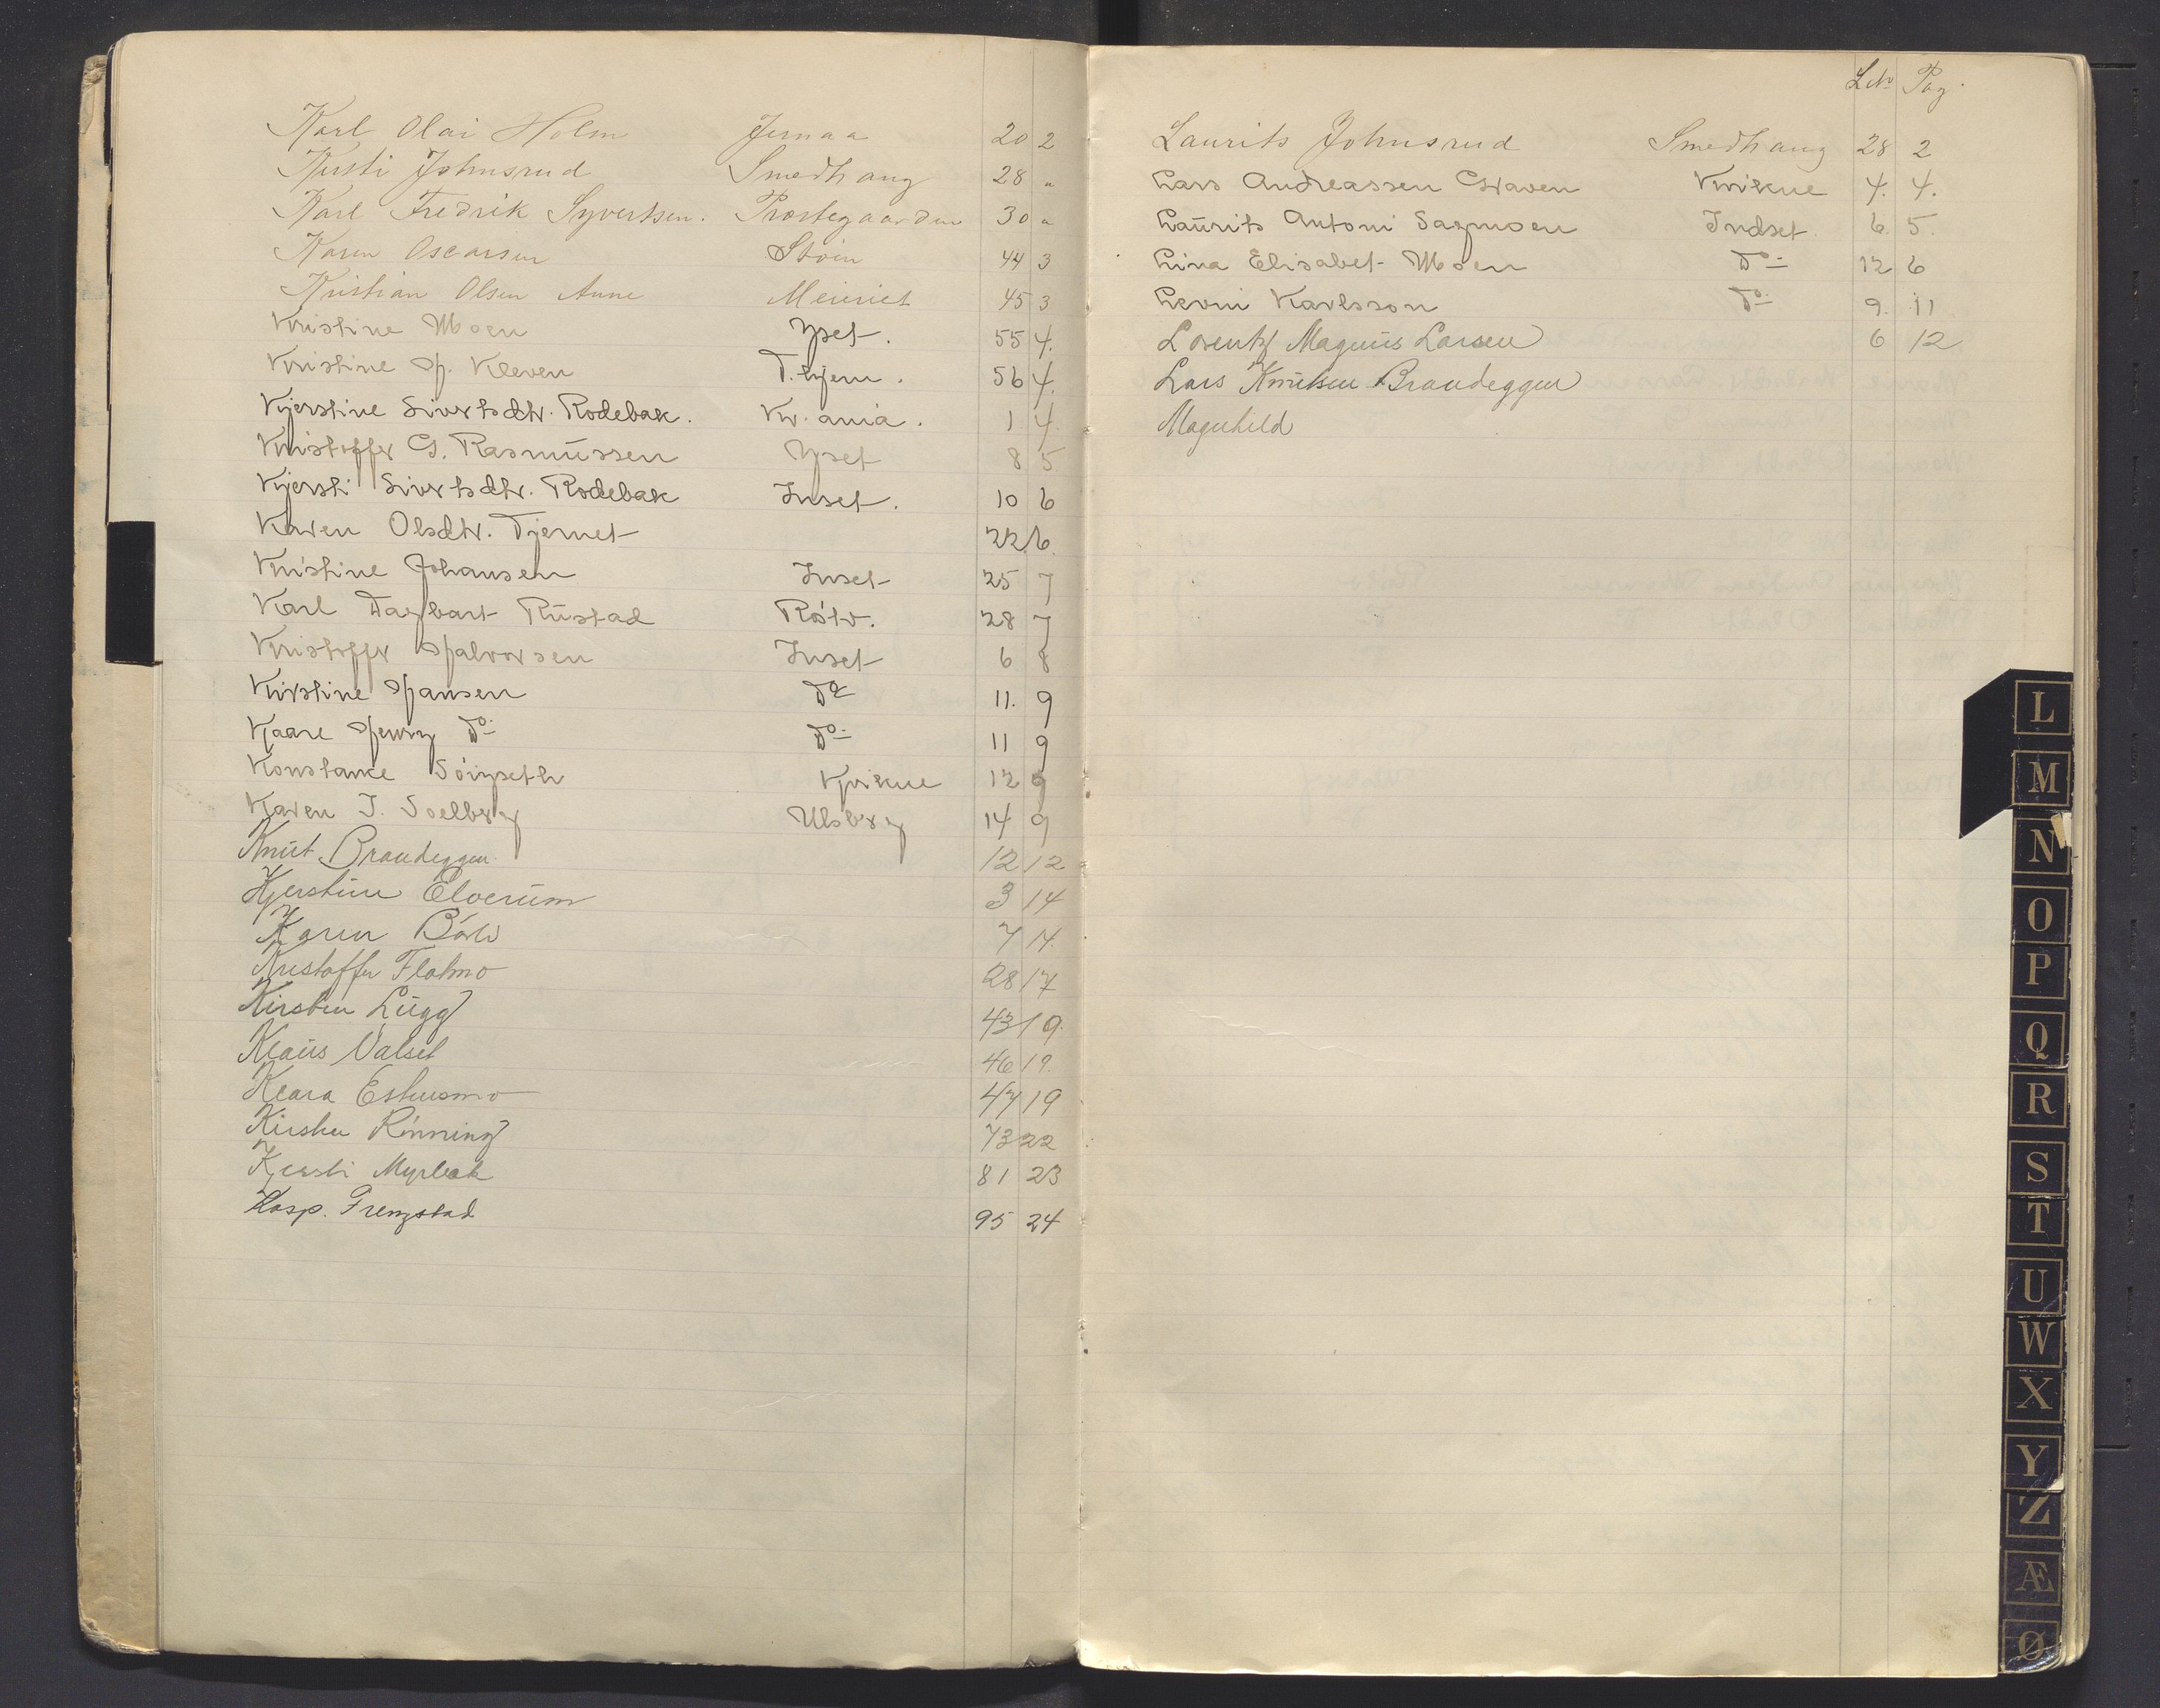 Karl Olai Holm Jernaa 20 2
Kirsti Johnsrud Smedhaug 28 "
Karl Fredrik Syvertsen. Prostegaarden 30 "
Karen Oscarsen Stöin 44 3
Kristian Olsen Aune Meieriet 45 3
Kristine Moen Yset. 55 4.
Kristine H. Kleven T.hjem. 56 4.
Kjerstine Sivertsdtr. Rodebak. Kr.ania. 1 4.
Kristoffer G. Rasmussen Yset 8 5
Kjersti Sivertsdtr. Rodebak Inset. 10 6
Karen Olsdtr. Tjernet 22 6.
Kristine Johansen Inset 25 7
Karl Dagbart Rustad Röstv. 28 7
Kristoffer Halvorsen Inset 6 8
Kirstine Hansen Do 11. 9
Kaare Henry Do Do 11 9
Konstance Söigseth Kvikne 12 9
Karen J. Soelberg Ulsberg 14 9
Knut Brandeggen 12 12
Kjerstine Elverum 3 14
Karen Bövle 7 14.
Kristoffer Flatmo 28 17
Kirsten Lugg 43 19.
Klaus Valset 46 19.
Klara Eshusmo 47 19
Kirsten Rönning 73 22
Kjersti Myrbak 81 23
Kasp. Frengstad 95 24
L No Pag.
Laurits Johnsrud Smedhaug 28 2
Lars Andreassen Graven Kvikne 4. 4.
Laurits Antoni Sagmoen Indset. 6. 5.
Lina Elisabet Moen Do 12 6
Levni Karlsson Do 9. 11
Lorentz Magnus Larsen 6 12
Lars Knutsen Brandeggen
Magnhild
L
M
N
O
P
Q
R
S
T
U
W
X
Y
Z
Æ
Ø